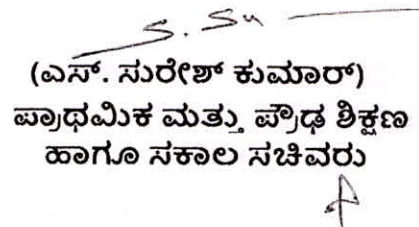 S. Su
(ಎಸ್. ಸುರೇಶ್ ಕುಮಾರ್)
ಪ್ರಾಥಮಿಕ ಮತ್ತು ಪ್ರೌಢ ಶಿಕ್ಷಣ
ಹಾಗೂ ಸಕಾಲ ಸಚಿವರು